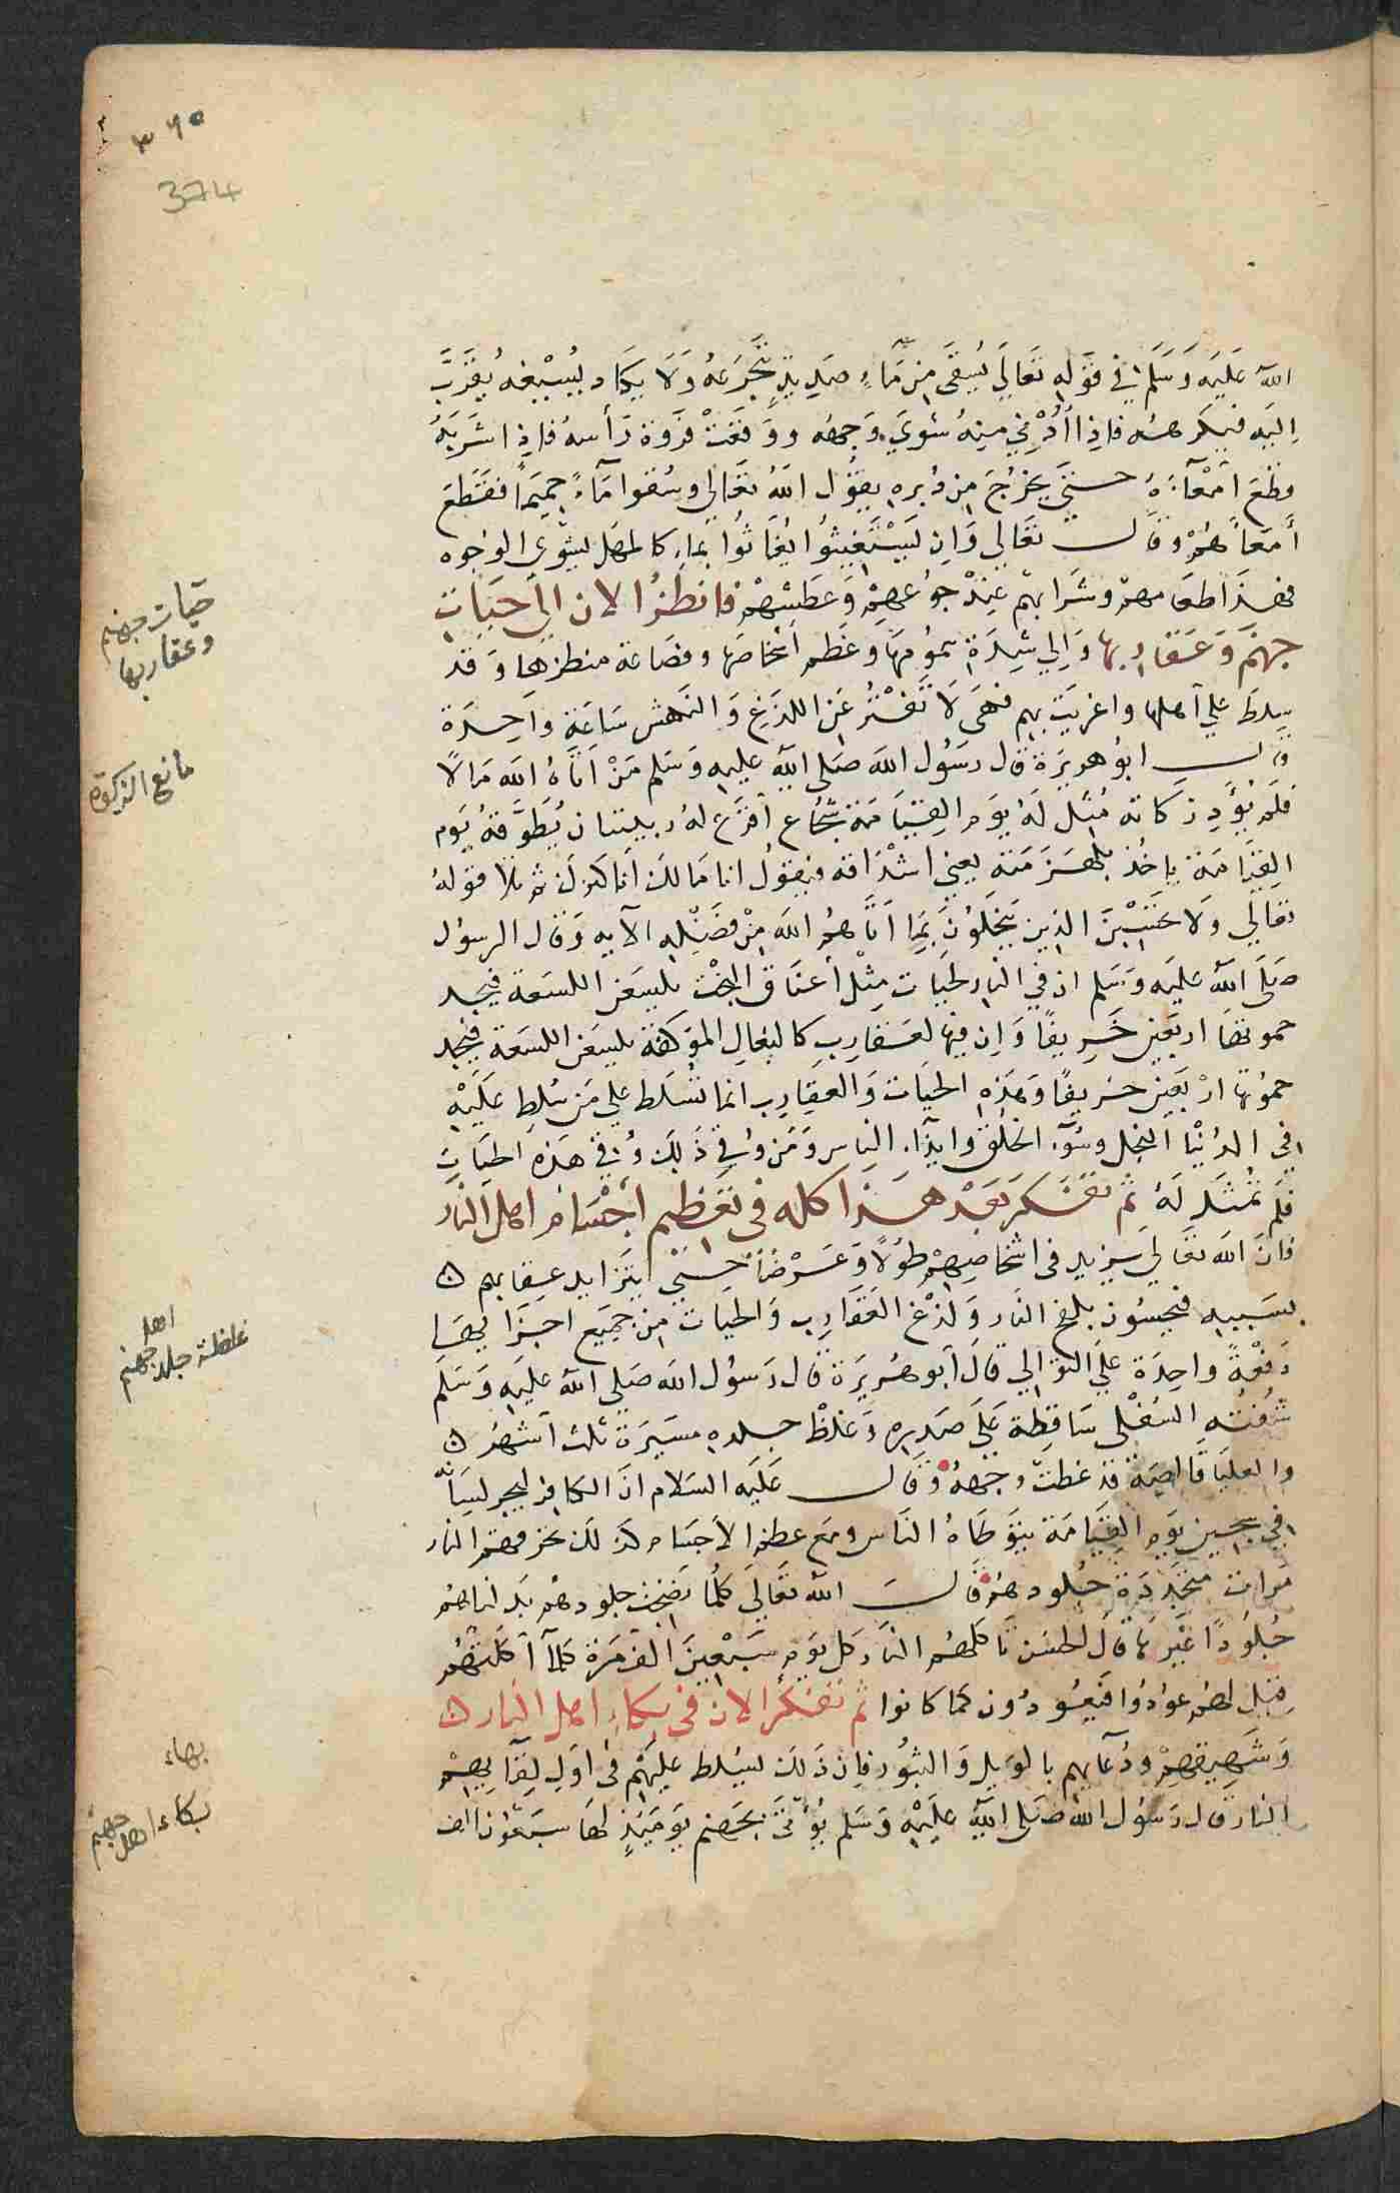 ٣٩٥
374
الله عَلَيه وَسَلَّم في قوله تَعَالَي يُسقَى مِن مَّاءٍ صَدِيدٍ يَتَجَرَعُهُ وَلَا يَكَاد يُسيْغه يُقرَبُ
اليَه فيكرهُه فاذا أُدْني مِنهُ شوَي وَجهَه ووقعَتْ فروَة رَأسهُ فاذا شَربَهُ
قطعَ امْعآءَهُ حتيَ يخرُجَ مِن دُبره يقوُل اللهُ تعَالي وسُقوا مَآءً حمِيمًا فقَطعَ
أَمعَاءَهُمْ وقَالَ تعَالي وَاِن يَسْتَغيثُوا يُغَاثُوا بماءٍ كالمهَل يشوي الوُجوه
فهذَا طعَامهمْ وشَرابهم عِندْ جوُعهمْ وَعَطشِهمْ فانظرُ الان الي حَيَاتِ
جهنَّم وَعَقاربها وَالي شِدَة سمُومهَا وعَظم اشخاصهَا وفضَاعة منظرهَا وَقد
سِلطَ علي اَهلها واغريَت بهم فهَي لَا تَفتُرُ عَن اللدَغ وَالنهش سَاعَةً واحِدَة
قال ابوُ هريرَة قال رسَوُل اللهَ صَلي اللهَ عليه وَسَلم مَنْ اتَاهُ اللهَ مَالًا
فلم يُؤَدِ زكاته مُثل لَهُ يوَم القِيَامَة شُجاع اَقرَع لهُ زبيبَتان يُطوَّقهُ يَوم
القِيَامَة ياخُذ بلهزمَتهِ يعني اشْدَاقه فيقولُ انا مَالكَ انَا كنزكَ ثم تلا قوَلهُ
تعَالَي وَلَا تحْسِبْنَ الذِين يَبْخَلوُنَ بمَا اتاهُم اللهَ مِنْ فضَلِه الآيه وَقال الرسوُل
صَلَي اللهَ عَليَه وَسَلم ان في النار لحَيَات مِثْل أعنَاق البُخْت يلسَعن اللسَعة فيجد
حموتهَا اربَعين خَرِيفًا وَاِن فيها لعَقارب كالبغالِ المؤكفة يلسَعن اللسَعة فيَجد
حموُتها ارْبعَين خَريفًا وَهذِه الحيَات وَالعقَارب انما تسُلَط علي مَن سُلطِ عَليَهْ
في الدُنْيا البُخل وسُوَء الخلُق وايذآء النِاس وَمَن وُقي ذَلكَ وُقيَ هَذه الحيَاتِ
فلَم تمُثَل لَهُ ثم تفَكر بَعَدْ هَذا كله في تعَظيم أجْسَام اهل النَار
فانَ الله تعَاليَ يزيد في اشخاصِهِمْ طوُلًا وَعَرْضًا حتيَ يتزَايد عذِابهم ٥
بسَببِه فيحِسُون بلفح النَار وَلدَغ العَقَارب وَالحيَات مِن جَميع اجزَايهَا
دَفعْةً واحِدَة علَي التوَالي قالَ اَبو هُريرَة قال رَسوُل اللهَ صَلَي اللهَ عليه وَسَلم
شفتُه السُفلي سَاقِطة عَلَي صَدره وَغلظْ جِلده مسَيَرة ثلاث اَشهُر ٥
والعليَا قَالصِة قد غطت وجْههُ وَقالَ عَليَه السَلام انَ الكافر ليجر لسَانه
في سِجين يَوَم القيَامَة يتوَطَاهُ النَاس ومَع عظم الاَجسَام كذلكَ تحرقهم النار
مَرات متجَددَة جُلودهُم قالَ الله تعَاليَ كلُما نَضجت جلودهم بَدلناهُم
جُلوُدًا غيرهَا قالَ الحسَن تاكلهمُ النار كل يوَم سَبْعِينَ الف مَرَة كلمَا اَكلتهُم
قيِل لهمُ عوُدُوا فيعُودُون كما كانوا ثم تفَكَّر الان في بكاءِ اهل النار ٥
وَشَهيِقهِمْ ودُعَآيهم بالوَيل وَالثبوُر فان ذَلكَ يسُلط عليهَمْ في اوَل القآيهِمْ
النار قال رَسوُل اللهَ صَلي اللهَ عَليَهْ وَسَلم يُؤْتيَ بجَهنم يوَمَيذٍ لهَا سَبعَوُن الف
حيات جهنم
وعقاربها
مانع الزكوة
غلظة جلد اهل جهنم
بهاء
بكاء اهل جهنم